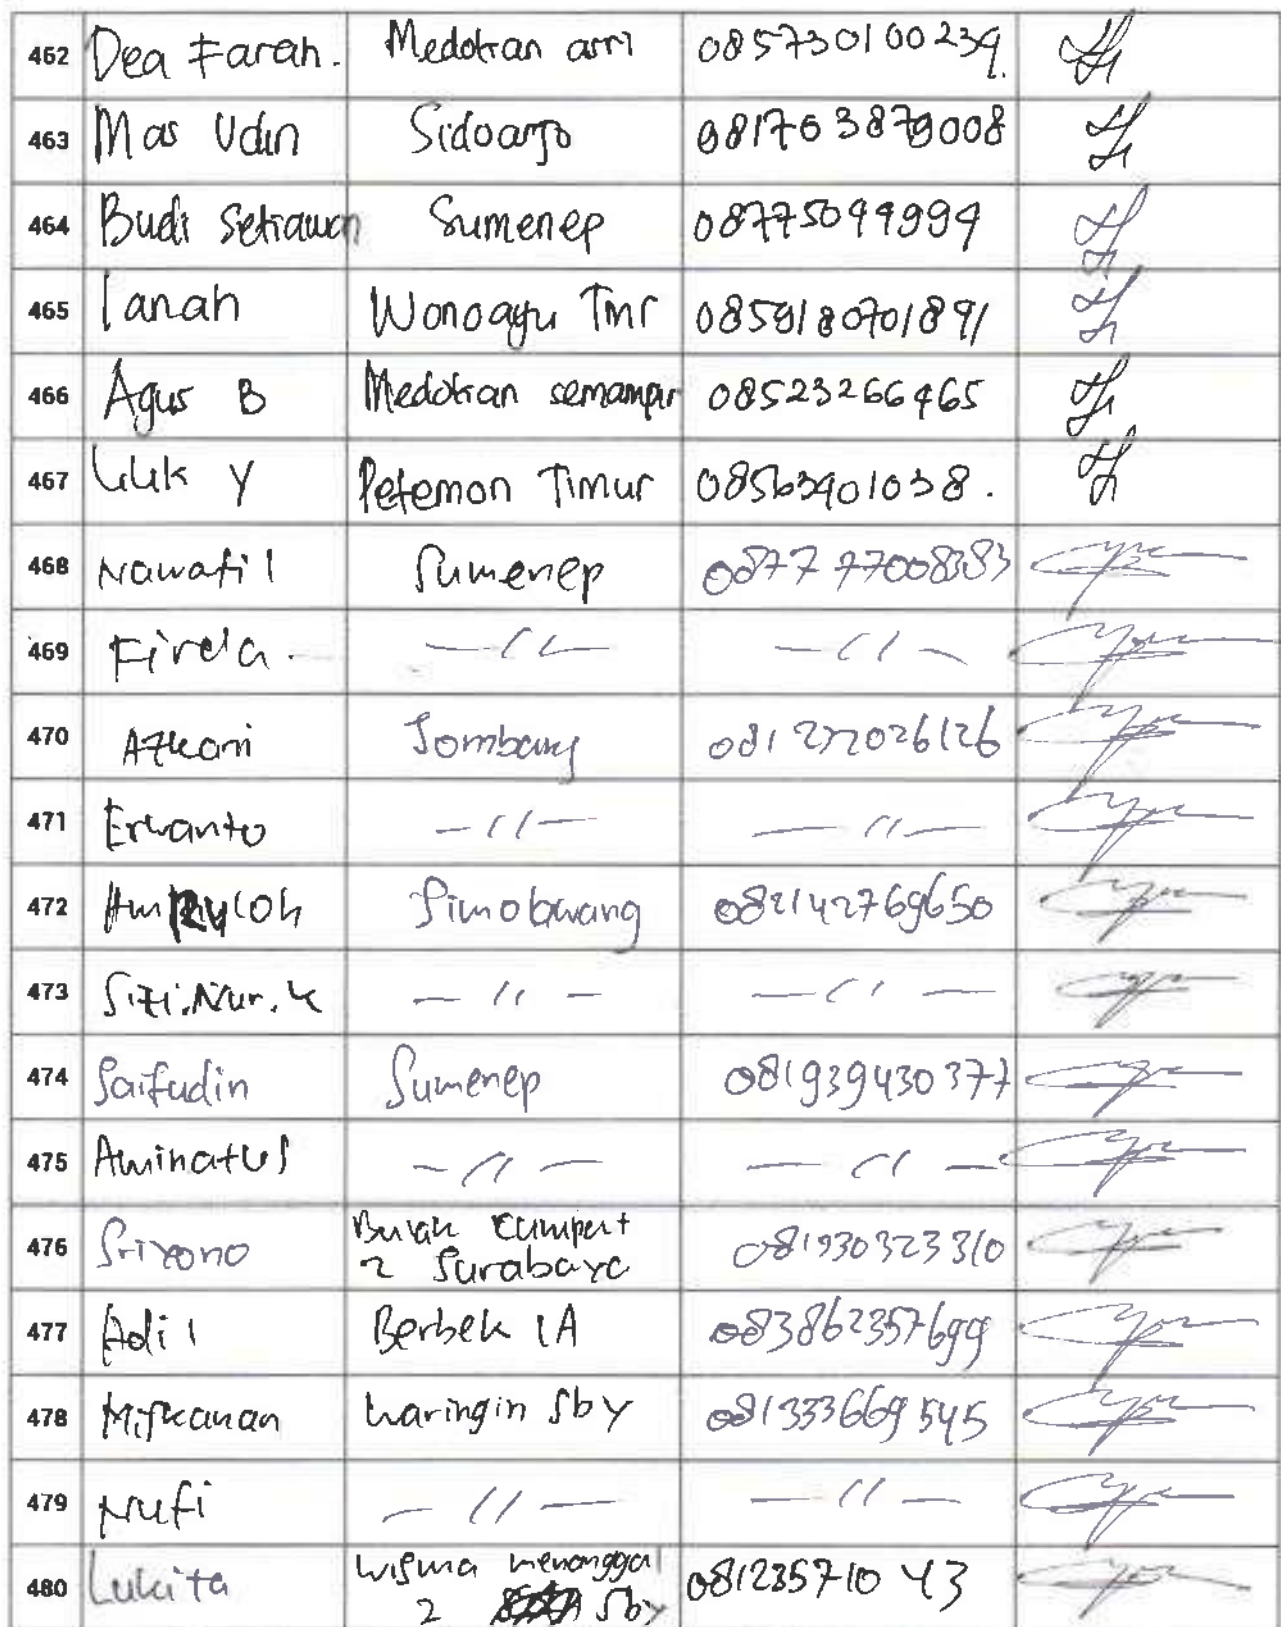 462 Dea Farah. Medokan asri 0857730100239.
463 Mas Udin Sidoarjo 081703879008
464 Budi Setiawan Sumenep 08775099999
465 Ianah Wonoayu Tmr 0859180701891
466 Agus B Medokan semampir 08523266965
467 Lilik Y Petemon Timur 08563901038.
468 Nawafil Sumenep 0877 77008383
469 Firda. — 〃 — — 〃 —
470 Azkari Jombang 081 272026126
471 Erwanto — 〃 — — 〃 —
472 Simobarang 082142769650
473 Siti.Nur.k — 〃 — — 〃 —
474 Saifudin Sumenep 081939430377
475 Aminatus — 〃 — — 〃 —
476 Sriyono Bulak Rumput 081930323310
2 Surabaya
477 Adi I Berbek IA 083862357699
478 Miskanan Waringin Sby 081333669545
479 Nufi — 〃 — — 〃 —
480 Lukita Wisma menanggal 081235710 43
2 Sby